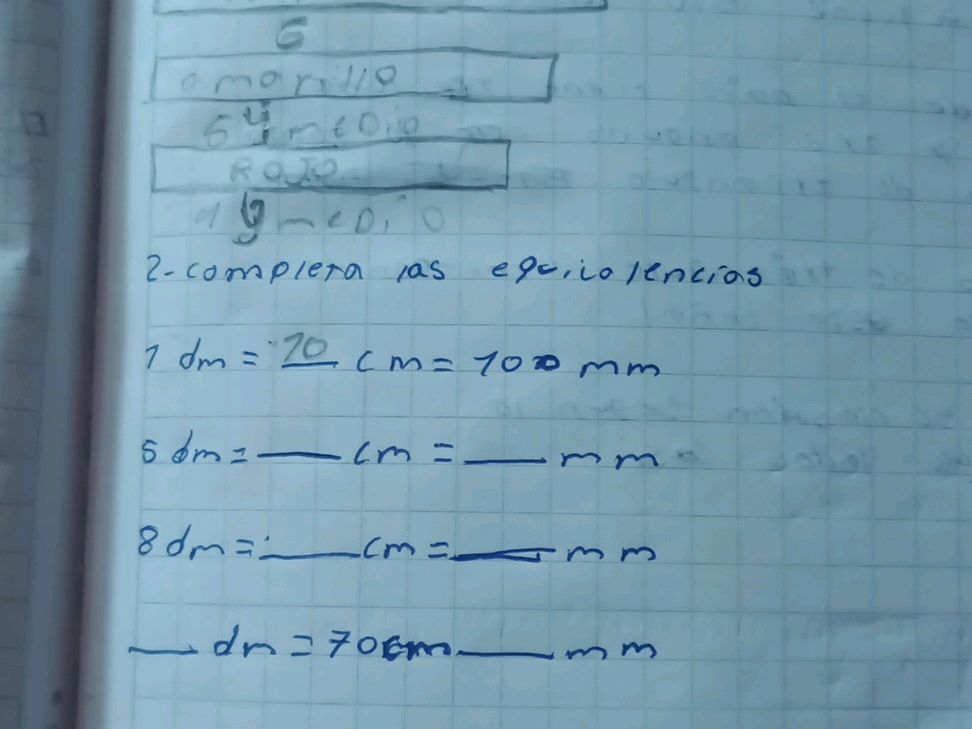 6
amarillo
5 y medio
ROJO
4 y medio
2-completa las equivalencias
1 dm = 10 cm = 100 mm
5 dm = ___ cm = ___ mm
8 dm = ___ cm = ___ mm
___ dm = 70 cm ___ mm